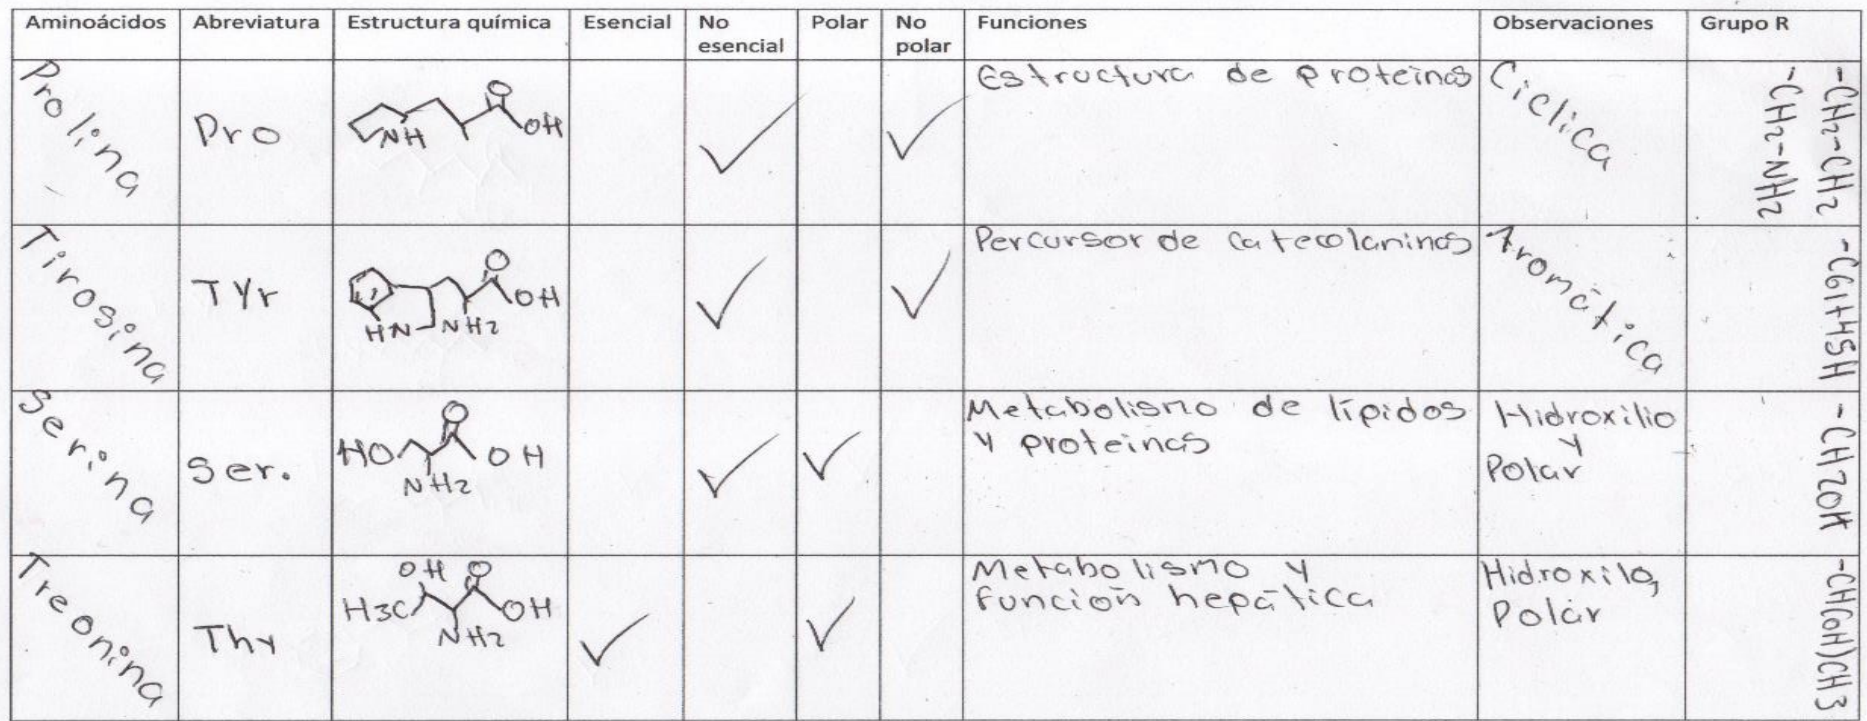 Aminoácidos Abreviatura Estructura química Esencial No esencial Polar No polar Funciones Observaciones Grupo R
Prolina Pro NH O OH ✓ ✓ Estructura de proteinas Ciclica -CH2-CH2
-CH2-NH2
Tirosina TYr HN NH2 O OH ✓ ✓ Percursor de catecolaninas Aromática -C6H4SH
Serina Ser. HO NH2 O OH ✓ ✓ Metabolismo de lípidos
y proteinas
Hidroxilio
y
Polar
-CH2OH
Treonina Thy H3C OH NH2 O OH ✓ ✓ Metabolismo y
función hepática
Hidroxilo,
Polar
-CH(OH)CH3